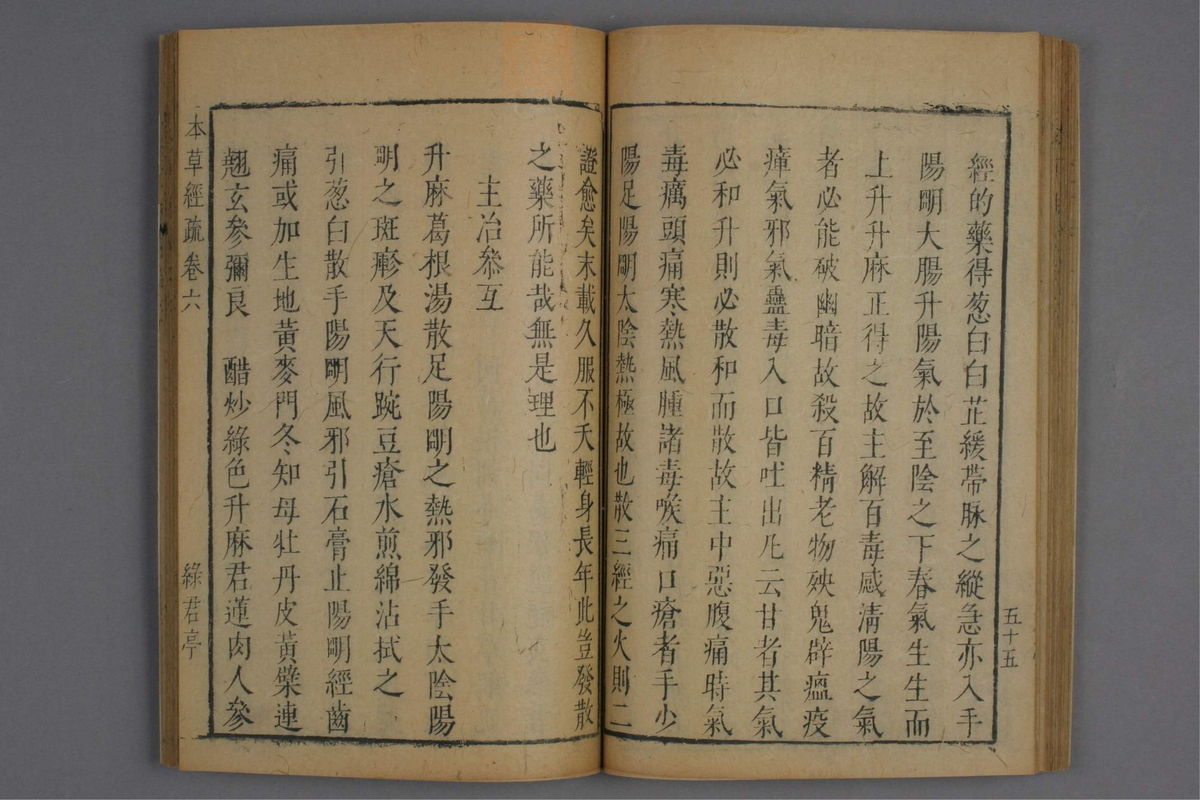 經的藥得葱白白芷緩帶脉之縱急亦入手
陽明大腸升陽氣於至陰之下春氣生生而
上升升麻正得之故主解百毒感清陽之氣
者必能破幽暗故殺百精老物殃鬼辟瘟疫
瘴氣邪氣蠱毒入口皆吐出㐲云甘者其氣
必和升則必散和而散故主中惡腹痛時氣
毒癘頭痛寒熱風腫諸毒喉痛口瘡者手少
陽足陽明太陰熱極故也散三經之火則二
五十五
證愈矣末載久服不夭輕身長年此豈發散
之藥所能哉無是理也
主治叅互
升麻葛根湯散足陽明之熱邪發手太陰陽
明之斑瘮及天行豌豆瘡水煎綿沾拭之
引葱白散手陽明風邪引石膏止陽明經齒
痛或加生地黃麥門冬知母牡丹皮黃檗連
翹玄參彌良 醋炒綠色升麻君蓮肉人參
本草經疏卷六
綠君亭